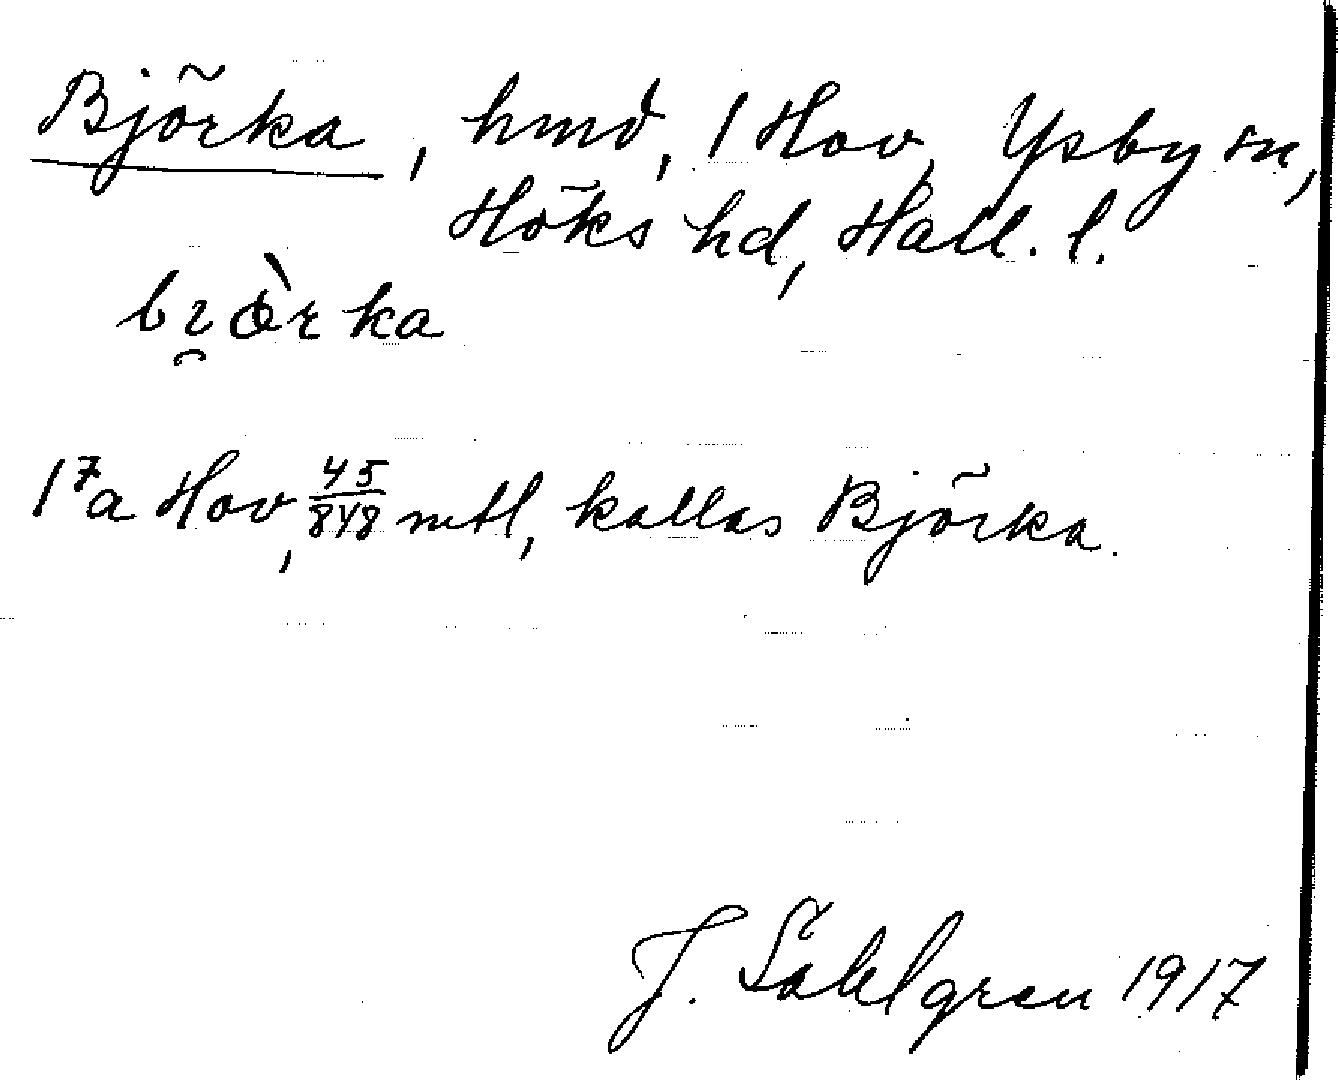 Björka, hmd, 1 Hov, Ysby sn,
Höks hd, Hall. l.
1⁷a Hov, 45/848 mtl, kallas Björka.
J. Sahlgren 1917